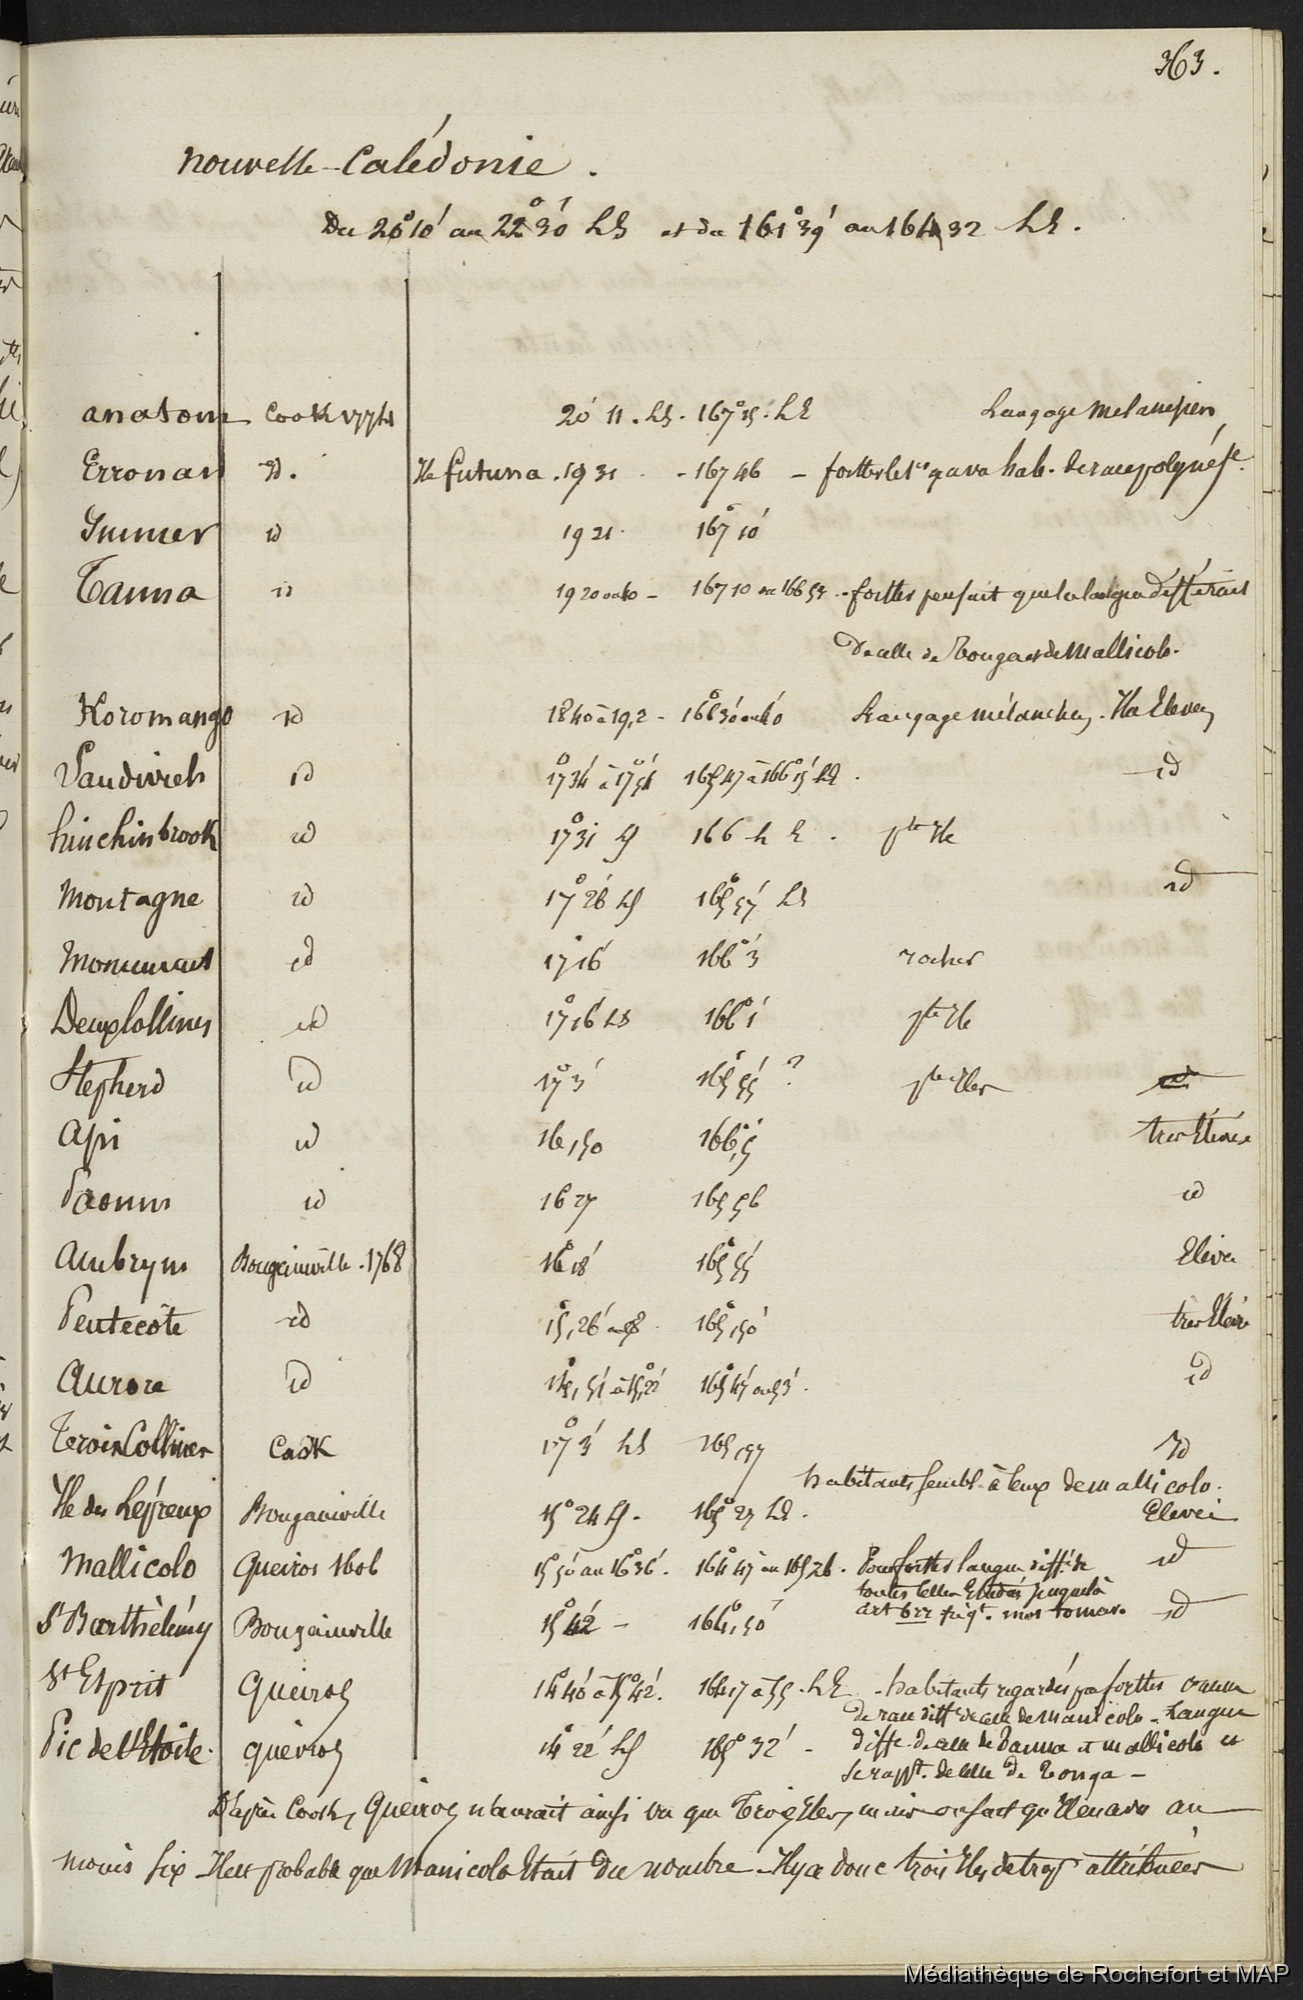 363.
Nouvelle-Calédonie.
Du 20°10' au 22°30' LS et du 161°39' au 164 32 LE.
anatom Cook 1774 20 11. LS. 167°15. LE Langage melanesien,
Erronan id. Ile futuna. 19 31 - 167 46 - forster les a hab. de race polynése.
Immer id 19 21. 167°10'
Tanna id 19 20 ou 40 - 167 10 ou 166 54. forster pensait que la langue différait
de celle de Tonga et de Mallicolo.
Koromango id 18 40 à 19,2 - 166°30' ou 40 Langage mélanésien. Ile Elevée
Sandwich id 17°34' à 17°54 165 47 à 166°15' LE. id
hinchinbrook id 17°31 LS 166 L E. pte Ile
Montagne id 17°26' LS 165°57' LE id
Monument id 17 16' 166°3 rocher
Deux Collines id 17°16' LS 166°1' pte Ile
Shepherd id 17°3' 165°55' ? ptes Iles
Api id 16,50 166°,5' très Elevée
Paoum id 16 27 165 56 id
Ambrym Bougainville. 1768 16°18' 165°55' Elevée
Pentecôte id 15°,26' 165°,50' très Elevée
Aurore id 14°,51' à 15°,22' 165°47' ou 53'. id
Trois Collines Cook 17°3' LS 165,57 Id
habitants sembl. à ceux de mallicolo.
Ile des Lépreux Bougainville 15°24 LS. 165°27 LE. Elevée
Mallicolo Queiros 1606 15°50' au 16°36'. 164°47' au 165 26. Pour forster langue diff. de
toutes celles Etudiés jusque là id
St Barthélémy Bougainville 15°42' - 164°,50' id
St Esprit Queiros 14°40' à 15°42'. 164 17 à 55. LE. habitants regardés par forster comme
de race difft de ceux de manicolo - Langue
Pic de l'Etoile. queiros 14°22' LS 165°32' - diffe. de celle de Tanna et mallicolo et
se rappt. de celle de Tonga -
D'après Cook, Queiros n'aurait ainsi vu que Trois Iles, mais on sait qu'il en a vu au
moins six Il est probable que Manicolo Etait du nombre - Il y a donc trois Iles de trop attribuées
Médiathèque de Rochefort et MAP